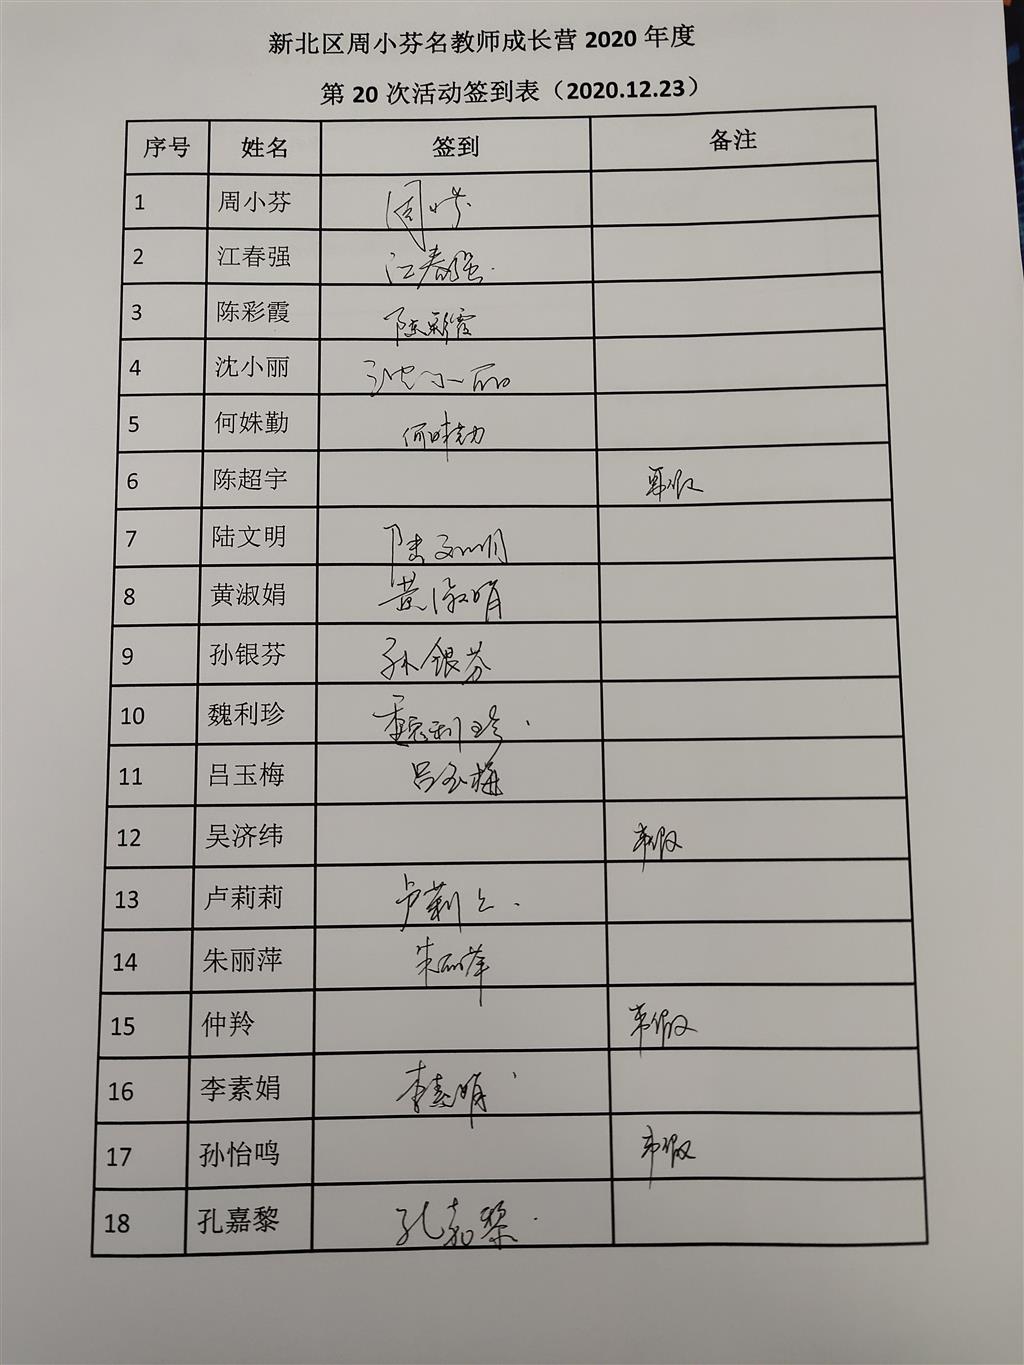 新北区周小芬名教师成长营 2020 年度
第 20 次活动签到表（2020.12.23）
序号 姓名 签到 备注
1 周小芬 周小芬
2 江春强 江春强
3 陈彩霞 陈彩霞
4 沈小丽 沈小丽
5 何姝勤 何姝勤
6 陈超宇 事假
7 陆文明 陆文明
8 黄淑娟 黄淑娟
9 孙银芬 孙银芬
10 魏利珍 魏利珍
11 吕玉梅 吕玉梅
12 吴济纬 事假
13 卢莉莉 卢莉莉
14 朱丽萍 朱丽萍
15 仲羚 事假
16 李素娟 李素娟
17 孙怡鸣 事假
18 孔嘉黎 孔嘉黎